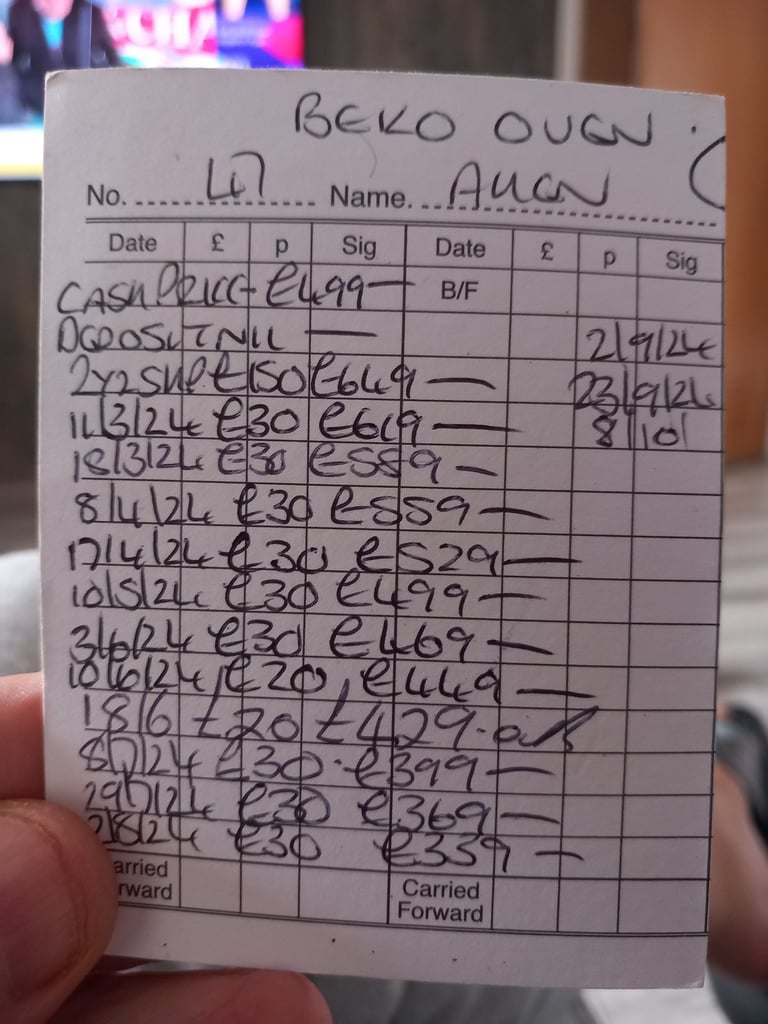 BEKO OVEN. (
No. 47 Name. ALLEN
Date £ p Sig Date £ p Sig
CASH PRICE £499— B/F
DEPOSIT NIL — 2/9/24
£150 £649 — 23/9/24
11/3/24 £30 £619 — 8/10/
18/3/24 £30 £589 —
8/4/24 £30 £559 —
17/4/24 £30 £529 —
10/5/24 £30 £499 —
3/6/24 £30 £469 —
10/6/24 £20 £449 —
18/6 £20 £429.
8/7/24 £30 . £399 —
29/7/24 £30 £369 —
2/8/24 £30 £339 —
arried rward Carried Forward